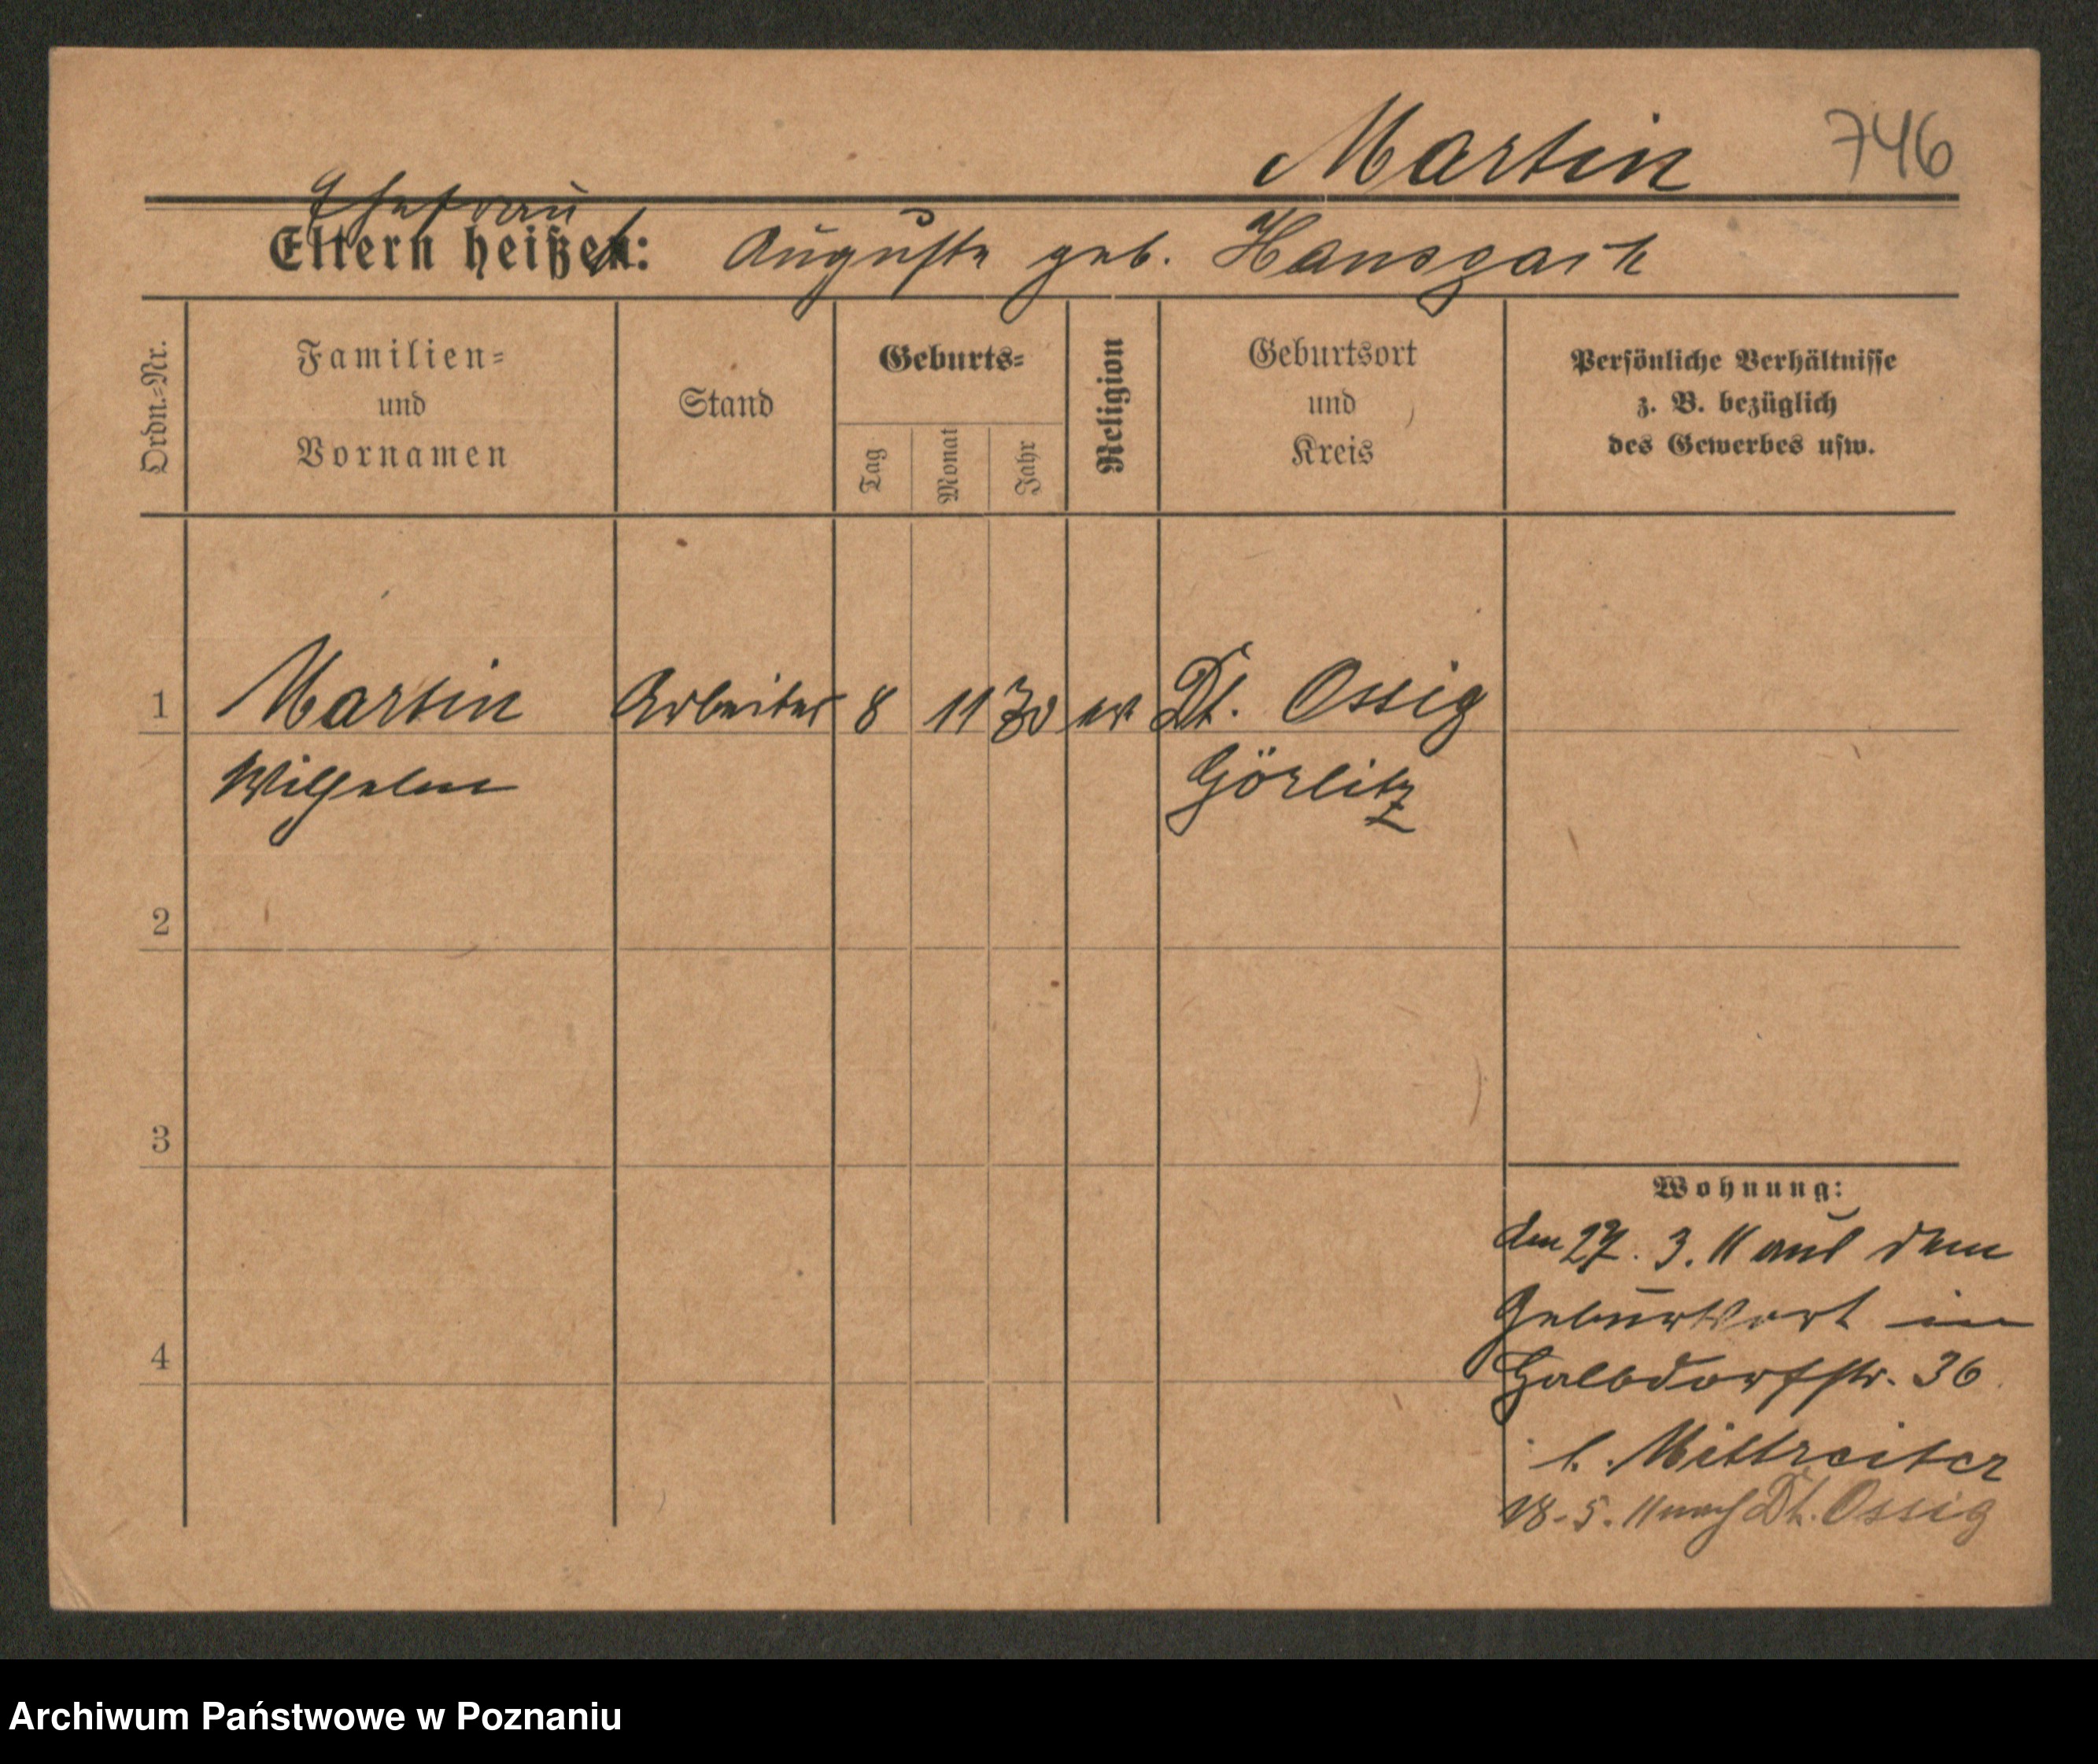 Martin 746
Ehefrau
Eltern heißen: Auguste geb. Hansgark
Ordn.=Nr.
Familien=
und
Vornamen
Stand
Geburts=
Tag
Monat
Jahr
Religion
Geburtsort
und
Kreis
Persönliche Verhältnisse
z. B. bezüglich
des Gewerbes usw.
1 Martin Arbeiter 8 11 70 ev Dt. Ossig
Wilhelm Görlitz
2
3
Wohnung:
den 27. 3. 11 aus dem
Geburtsort in
4
Halbdorfstr. 36
b. Mittreiter
18. 5. 11 nach Dt. Ossig
Archiwum Państwowe w Poznaniu